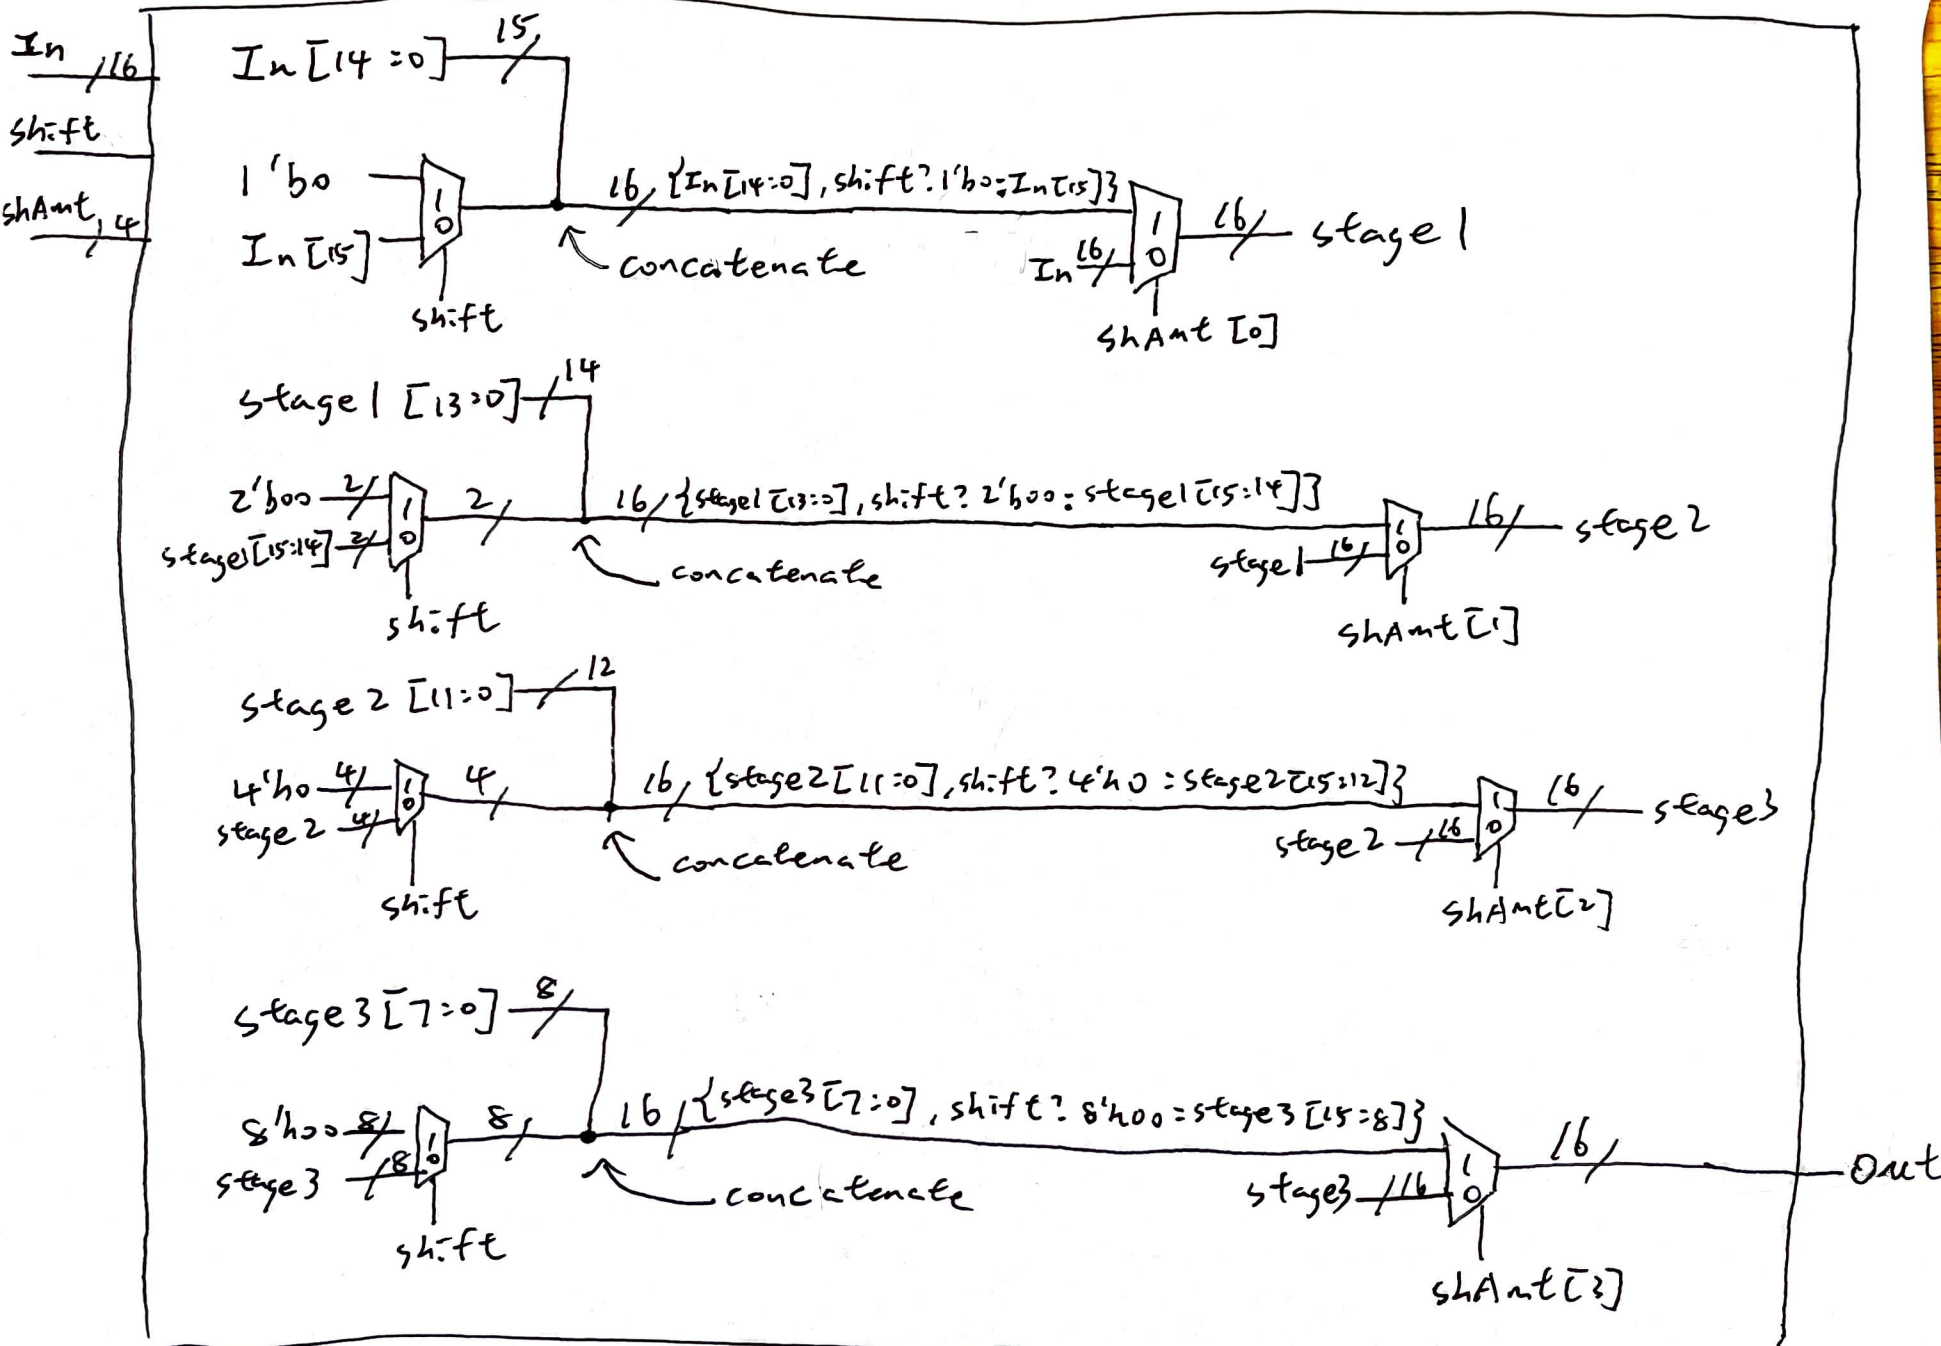 In
16
shift
shAmt
4
In[14:0]
15
1'b0
1
0
In[15]
shift
16 {In[14:0], shift? 1'b0:In[15]}
concatenate
In 16
1
0
16
stage1
shAmt[0]
stage1 [13:0]
14
2'b00 2
stage1[15:14] 2
1
0
2
shift
16 {stage1[13:0], shift? 2'b00: stage1[15:14]}
concatenate
stage1 16
1
0
16
stage2
shAmt[1]
stage2 [11:0]
12
4'h0 4
stage2 4
1
0
4
shift
16 {stage2[11:0], shift? 4'h0 : stage2[15:12]}
concatenate
stage2 16
1
0
16
stage3
shAmt[2]
stage3[7:0]
8
8'h00 8
stage3 8
1
0
8
shift
16 {stage3[7:0], shift? 8'h00 : stage3[15:8]}
concatenate
stage3 16
1
0
16
out
shAmt[3]